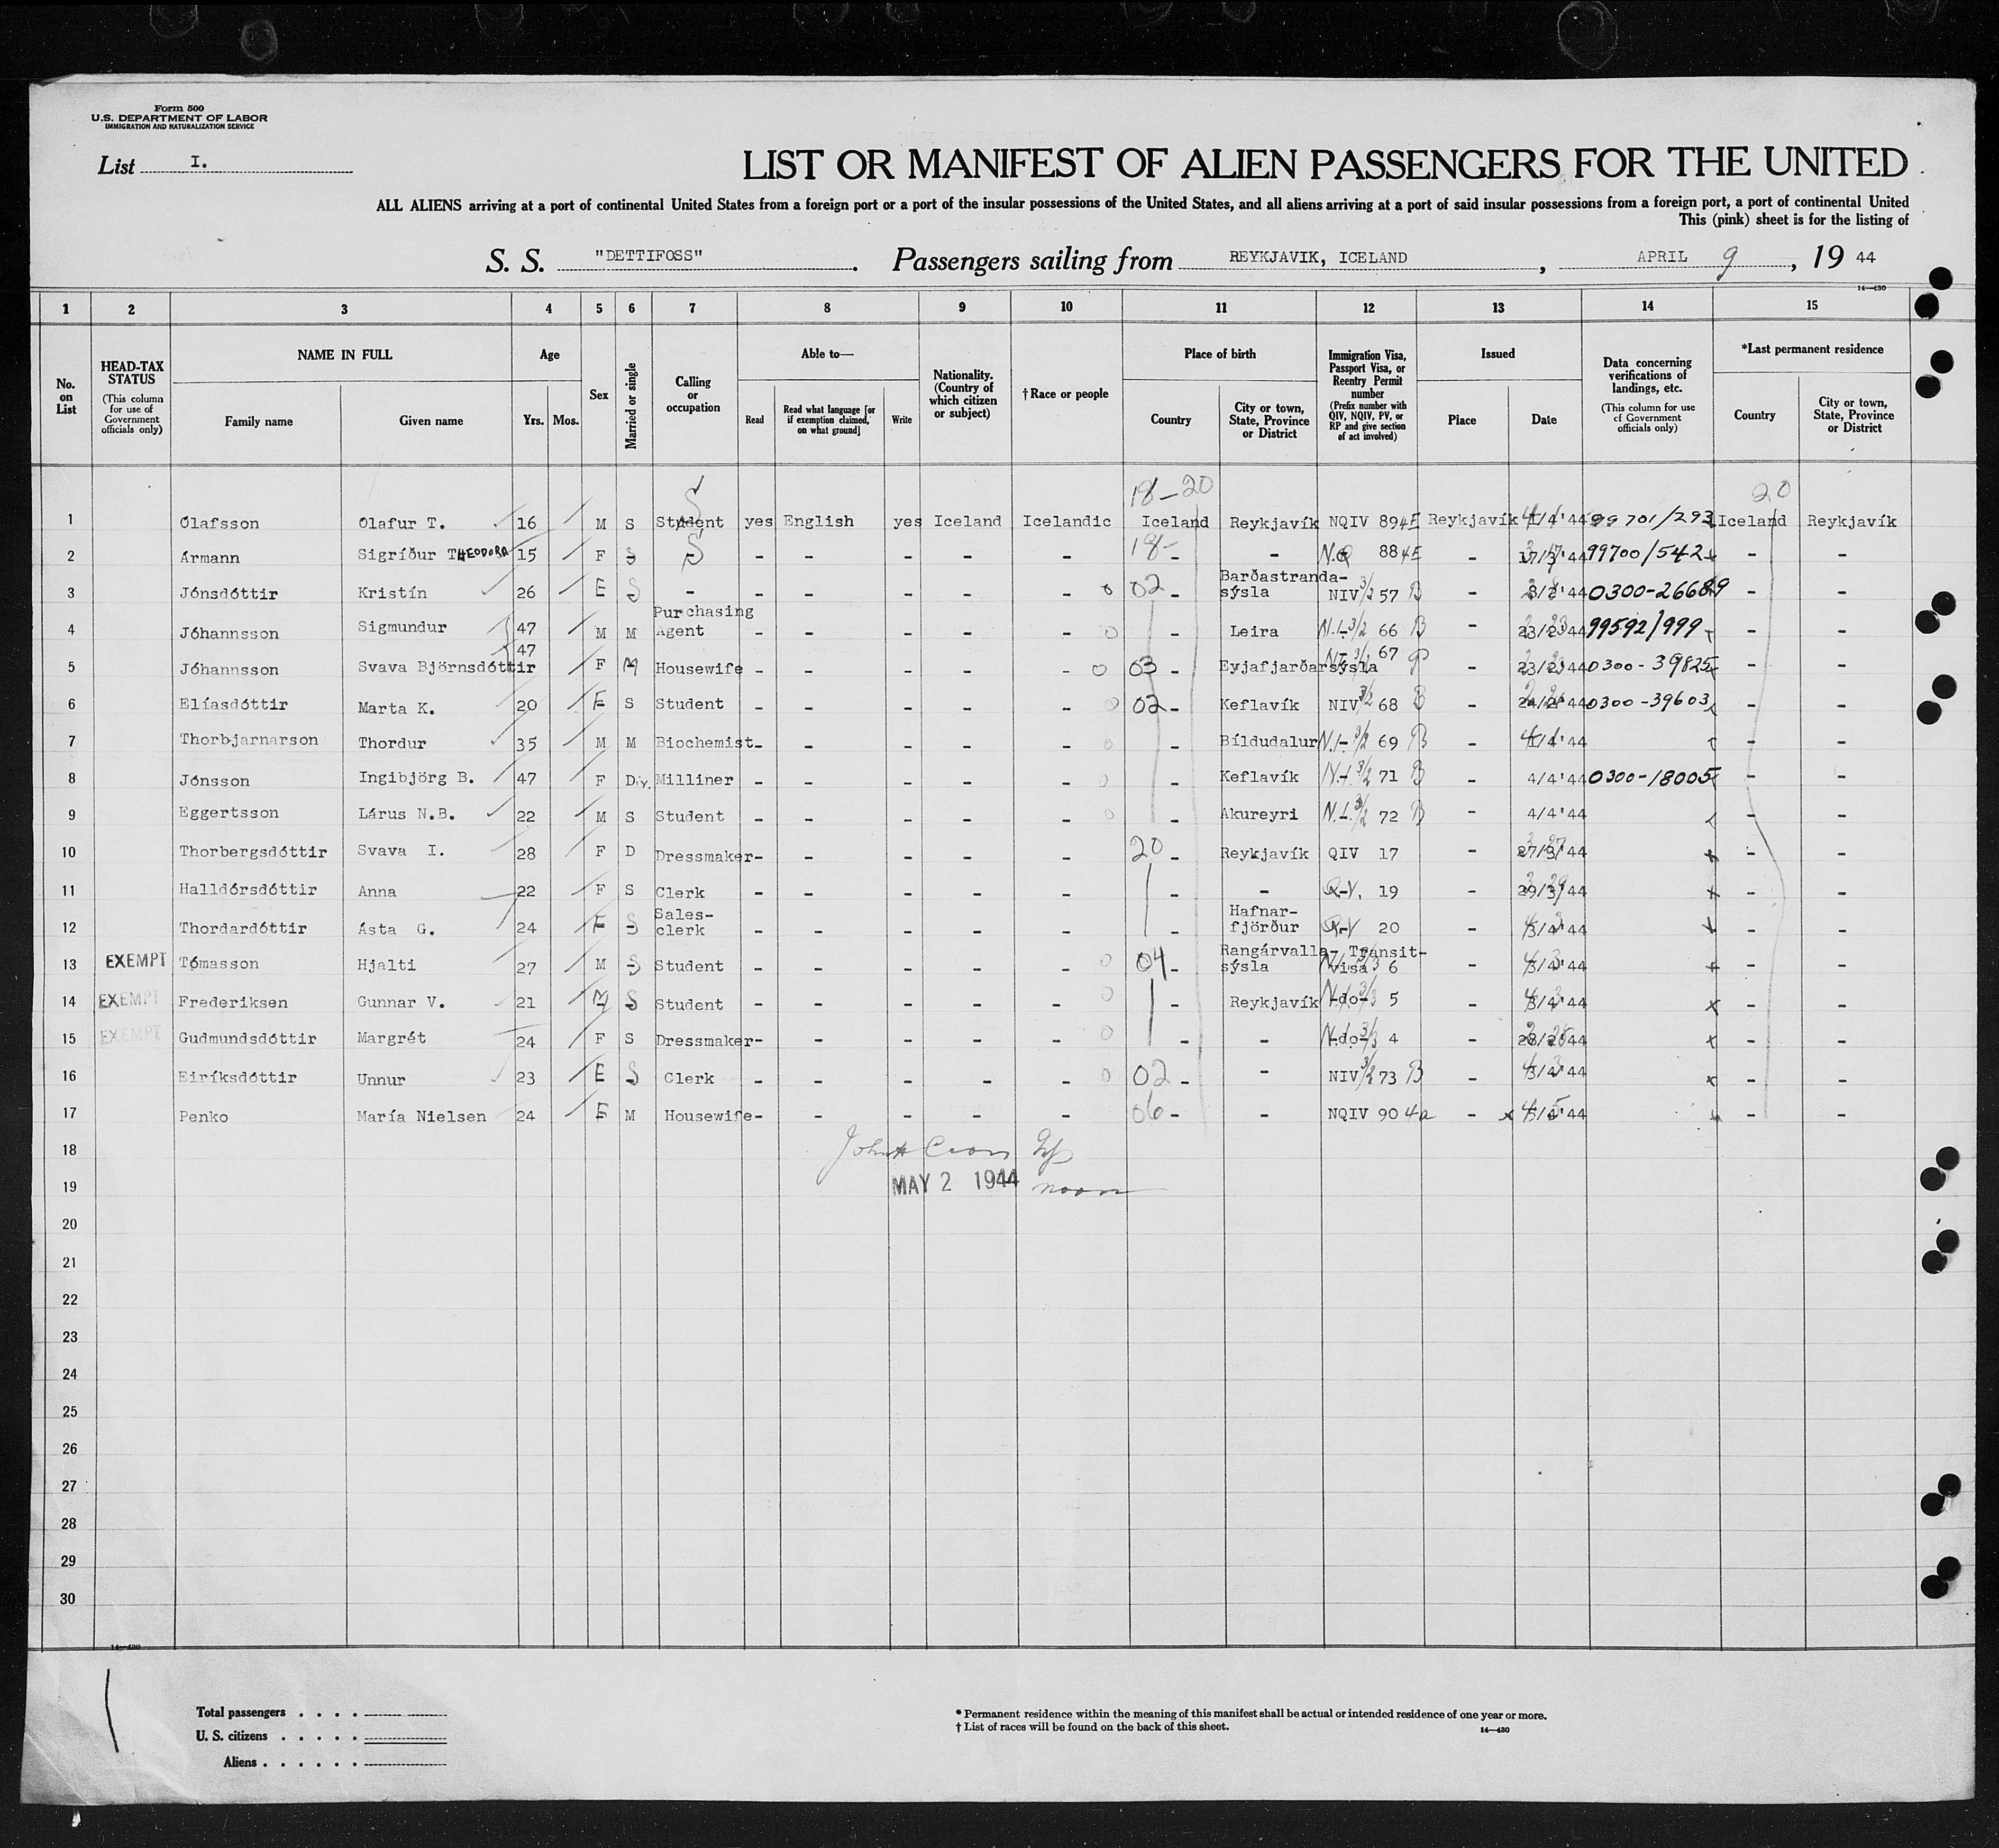 Form 500
U.S. DEPARTMENT OF LABOR
IMMIGRATION AND NATURALIZATION SERVICE
List I.
LIST OR MANIFEST OF ALIEN PASSENGERS FOR THE UNITED
ALL ALIENS arriving at a port of continental United States from a foreign port or a port of the insular possessions of the United States, and all aliens arriving at a port of said insular possessions from a foreign port, a port of continental United
This (pink) sheet is for the listing of
S. S. "DETTIFOSS". Passengers sailing from REYKJAVIK, ICELAND, APRIL 9, 19 44
14—430
1 2 3 4 5 6 7 8 9 10 11 12 13 14 15
No. on List
HEAD-TAX STATUS (This column for use of Government officials only)
NAME IN FULL
Family name
Given name
Age
Yrs. Mos.
Sex
Married or single
Calling or occupation
Able to—
Read
Read what language [or if exemption claimed, on what ground]
Write
Nationality. (Country of which citizen or subject)
†Race or people
Place of birth
Country
City or town, State, Province or District
Immigration Visa, Passport Visa, or Reentry Permit number (Prefix number with QIV, NQIV, PV, or RP and give section of act involved)
Issued
Place
Date
Data concerning verifications of landings, etc. (This column for use of Government officials only)
*Last permanent residence
Country
City or town, State, Province or District
18-20 20
1 Ólafsson Olafur T. 16 M S Student yes English yes Iceland Icelandic Iceland Reykjavík NQIV 89 4E Reykjavík 4/4'44 99701/293 Iceland Reykjavík
2 Ármann Sigríður THEODORA 15 F S S - - - - - 18- - N.Q 88 4E - 17/3'44 99700/542 - -
3 Jónsdóttir Kristín 26 F S - - - - - - 02 - Barðastranda-sýsla NIV 3/2 57 B - 0300-26689 - -
4 Jóhannsson Sigmundur 47 M M Purchasing Agent - - - - - - Leira N.I. 3/2 66 B - 23/2'44 99592/999 - -
5 Jóhannsson Svava Björnsdóttir 47 F M Housewife - - - - - 03 - Eyjafjarðarsýsla 3/2 67 - 23/2'44 0300-39825 - -
6 Elíasdóttir Marta K. 20 F S Student - - - - - 02 - Keflavík NIV 3/2 68 B - 0300-39603 - -
7 Thorbjarnarson Thordur 35 M M Biochemist - - - - - - Bíldudalur N.I. 3/2 69 B - 4/4'44 - -
8 Jónsson Ingibjörg B. 47 F Div. Milliner - - - - - - Keflavík N.I. 3/2 71 B - 4/4'44 0300-18005 - -
9 Eggertsson Lárus N.B. 22 M S Student - - - - - - Akureyri N.I. 3/2 72 B - 4/4'44 - -
10 Thorbergsdóttir Svava I. 28 F D Dressmaker - - - - - 20 - Reykjavík QIV 17 - 27/3/44 - -
11 Halldórsdóttir Anna 22 F S Clerk - - - - - - - Q-V. 19 - 29/3/44 - -
12 Thordardóttir Ásta G. 24 F S Sales-clerk - - - - - - Hafnar-fjörður Q-V 20 - 3/4'44 - -
13 EXEMPT Tómasson Hjalti 27 M S Student - - - - - 04 - Rangárvalla-sýsla Transit-visa 6 - 3/4'44 - -
14 EXEMPT Frederiksen Gunnar V. 21 M S Student - - - - - - Reykjavík -do- 5 - 3/4'44 - -
15 EXEMPT Gudmundsdóttir Margrét 24 F S Dressmaker - - - - - - - -do- 4 - - -
16 Eiríksdóttir Unnur 23 F S Clerk - - - - - 02 - - NIV 3/2 73 B - 3/4'44 - -
17 Penko María Nielsen 24 F M Housewife - - - - - 06 - - NQIV 90 4a - - -
18
MAY 2 1944 noon
19
20
21
22
23
24
25
26
27
28
29
30
14—430
Total passengers . . . .
U. S. citizens . . . . .
Aliens . . . . . .
* Permanent residence within the meaning of this manifest shall be actual or intended residence of one year or more.
† List of races will be found on the back of this sheet. 14—430